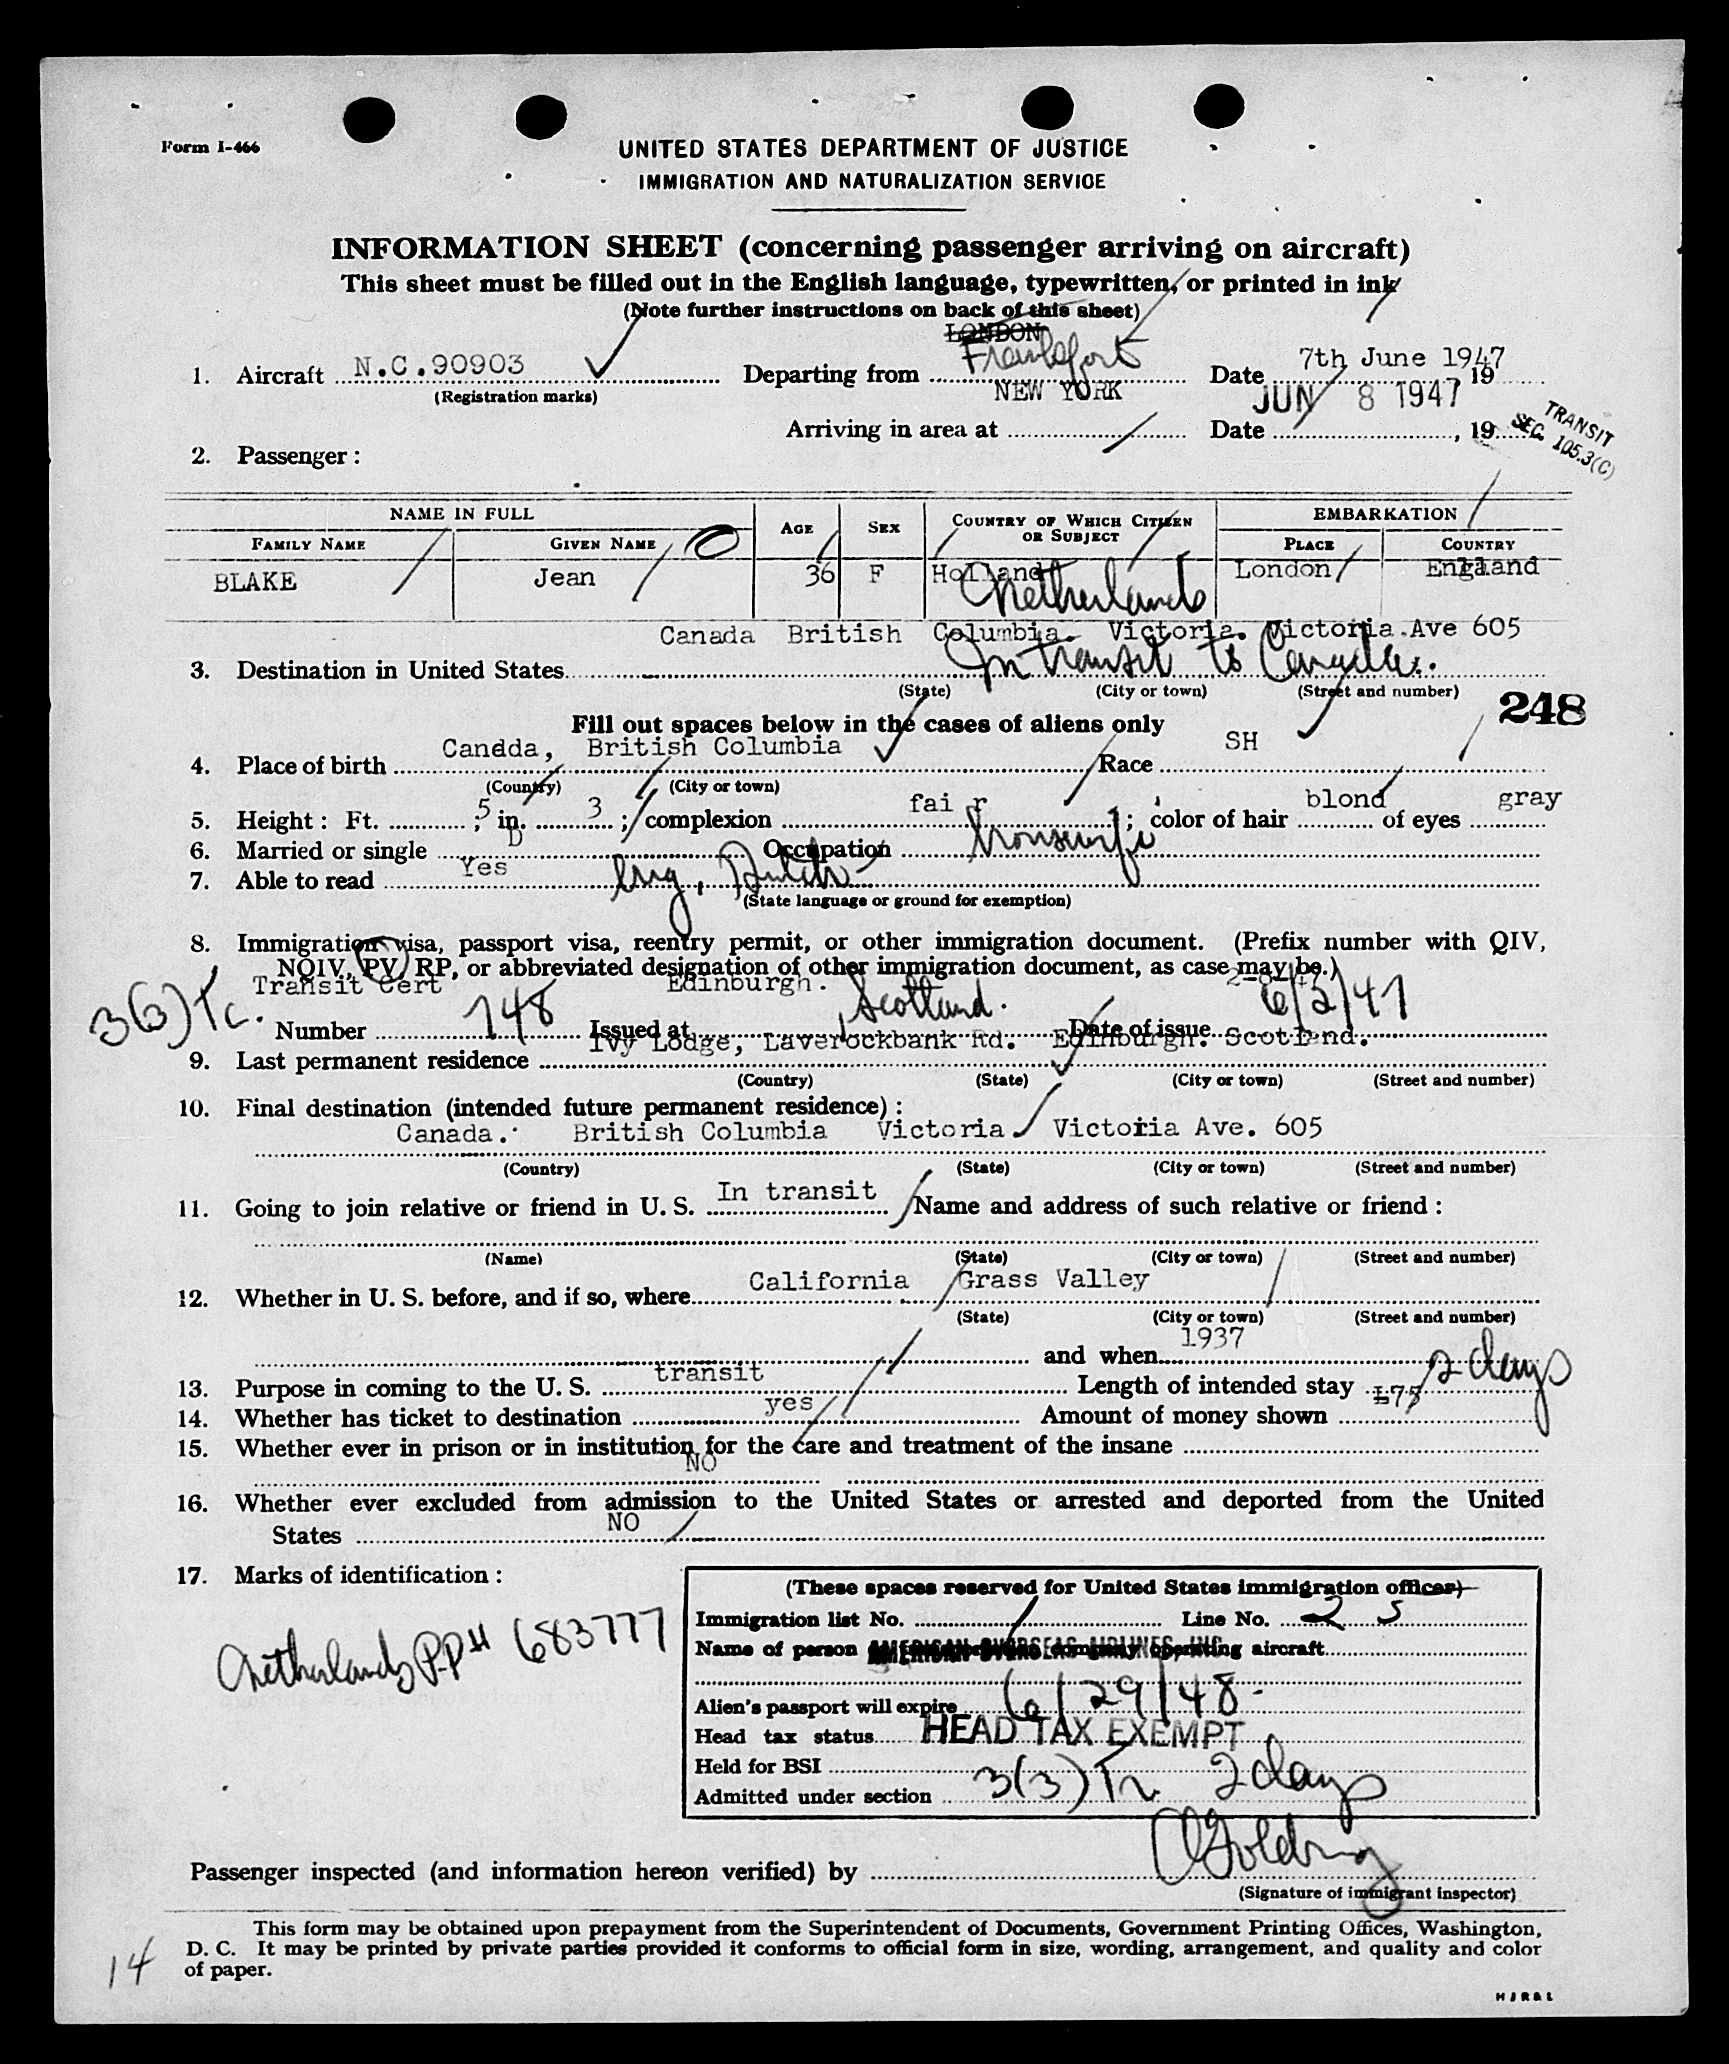 Form I-466
UNITED STATES DEPARTMENT OF JUSTICE
IMMIGRATION AND NATURALIZATION SERVICE
INFORMATION SHEET (concerning passenger arriving on aircraft)
This sheet must be filled out in the English language, typewritten, or printed in ink
(Note further instructions on back of this sheet)
LONDON
1. Aircraft N.C.90903 Departing from Frankfort Date 7th June 1947, 19
(Registration marks)
NEW YORK JUN 8 1947
Arriving in area at Date , 19
TRANSIT
SEC. 105.3(C)
2. Passenger:
NAME IN FULL AGE SEX COUNTRY OF WHICH CITIZEN OR SUBJECT EMBARKATION
FAMILY NAME GIVEN NAME PLACE COUNTRY
BLAKE Jean 36 F Holland London England
Netherlands
Canada British Columbia. Victoria. Victoria.Ave 605
3. Destination in United States In transit to Canada.
(State) (City or town) (Street and number)
248
Fill out spaces below in the cases of aliens only
4. Place of birth Canada, British Columbia Race SH
(Country) (City or town)
5. Height: Ft. 5, in. 3; complexion fair; color of hair blond of eyes gray
6. Married or single D Occupation
7. Able to read Yes Eng, Dutch
(State language or ground for exemption)
8. Immigration visa, passport visa, reentry permit, or other immigration document. (Prefix number with QIV,
NQIV, PV, RP, or abbreviated designation of other immigration document, as case may be.)
Transit Cert Edinburgh.
3(3)Tr.
Number 748 Issued at Scotland. Date of issue 6/2/47
9. Last permanent residence Ivy Lodge, Laverockbank Rd. Edinburgh. Scotland.
(Country) (State) (City or town) (Street and number)
10. Final destination (intended future permanent residence):
Canada. British Columbia Victoria Victoria Ave. 605
(Country) (State) (City or town) (Street and number)
11. Going to join relative or friend in U. S. In transit Name and address of such relative or friend:
(Name) (State) (City or town) (Street and number)
12. Whether in U. S. before, and if so, where California Grass Valley
(State) (City or town) (Street and number)
and when 1937
13. Purpose in coming to the U. S. transit Length of intended stay 2 days
14. Whether has ticket to destination yes Amount of money shown £75
15. Whether ever in prison or in institution for the care and treatment of the insane
NO
16. Whether ever excluded from admission to the United States or arrested and deported from the United
States NO
17. Marks of identification:
Netherlands P.P# 683777
(These spaces reserved for United States immigration officer)
Immigration list No. Line No. 25
Name of person AMERICAN OVERSEAS AIRLINES, INC. company operating aircraft
Alien's passport will expire 6/29/48
Head tax status HEAD TAX EXEMPT
Held for BSI
Admitted under section 3(3) Tr 2 days
Passenger inspected (and information hereon verified) by
(Signature of immigrant inspector)
This form may be obtained upon prepayment from the Superintendent of Documents, Government Printing Offices, Washington,
D. C. It may be printed by private parties provided it conforms to official form in size, wording, arrangement, and quality and color
of paper.
14
H J R & L